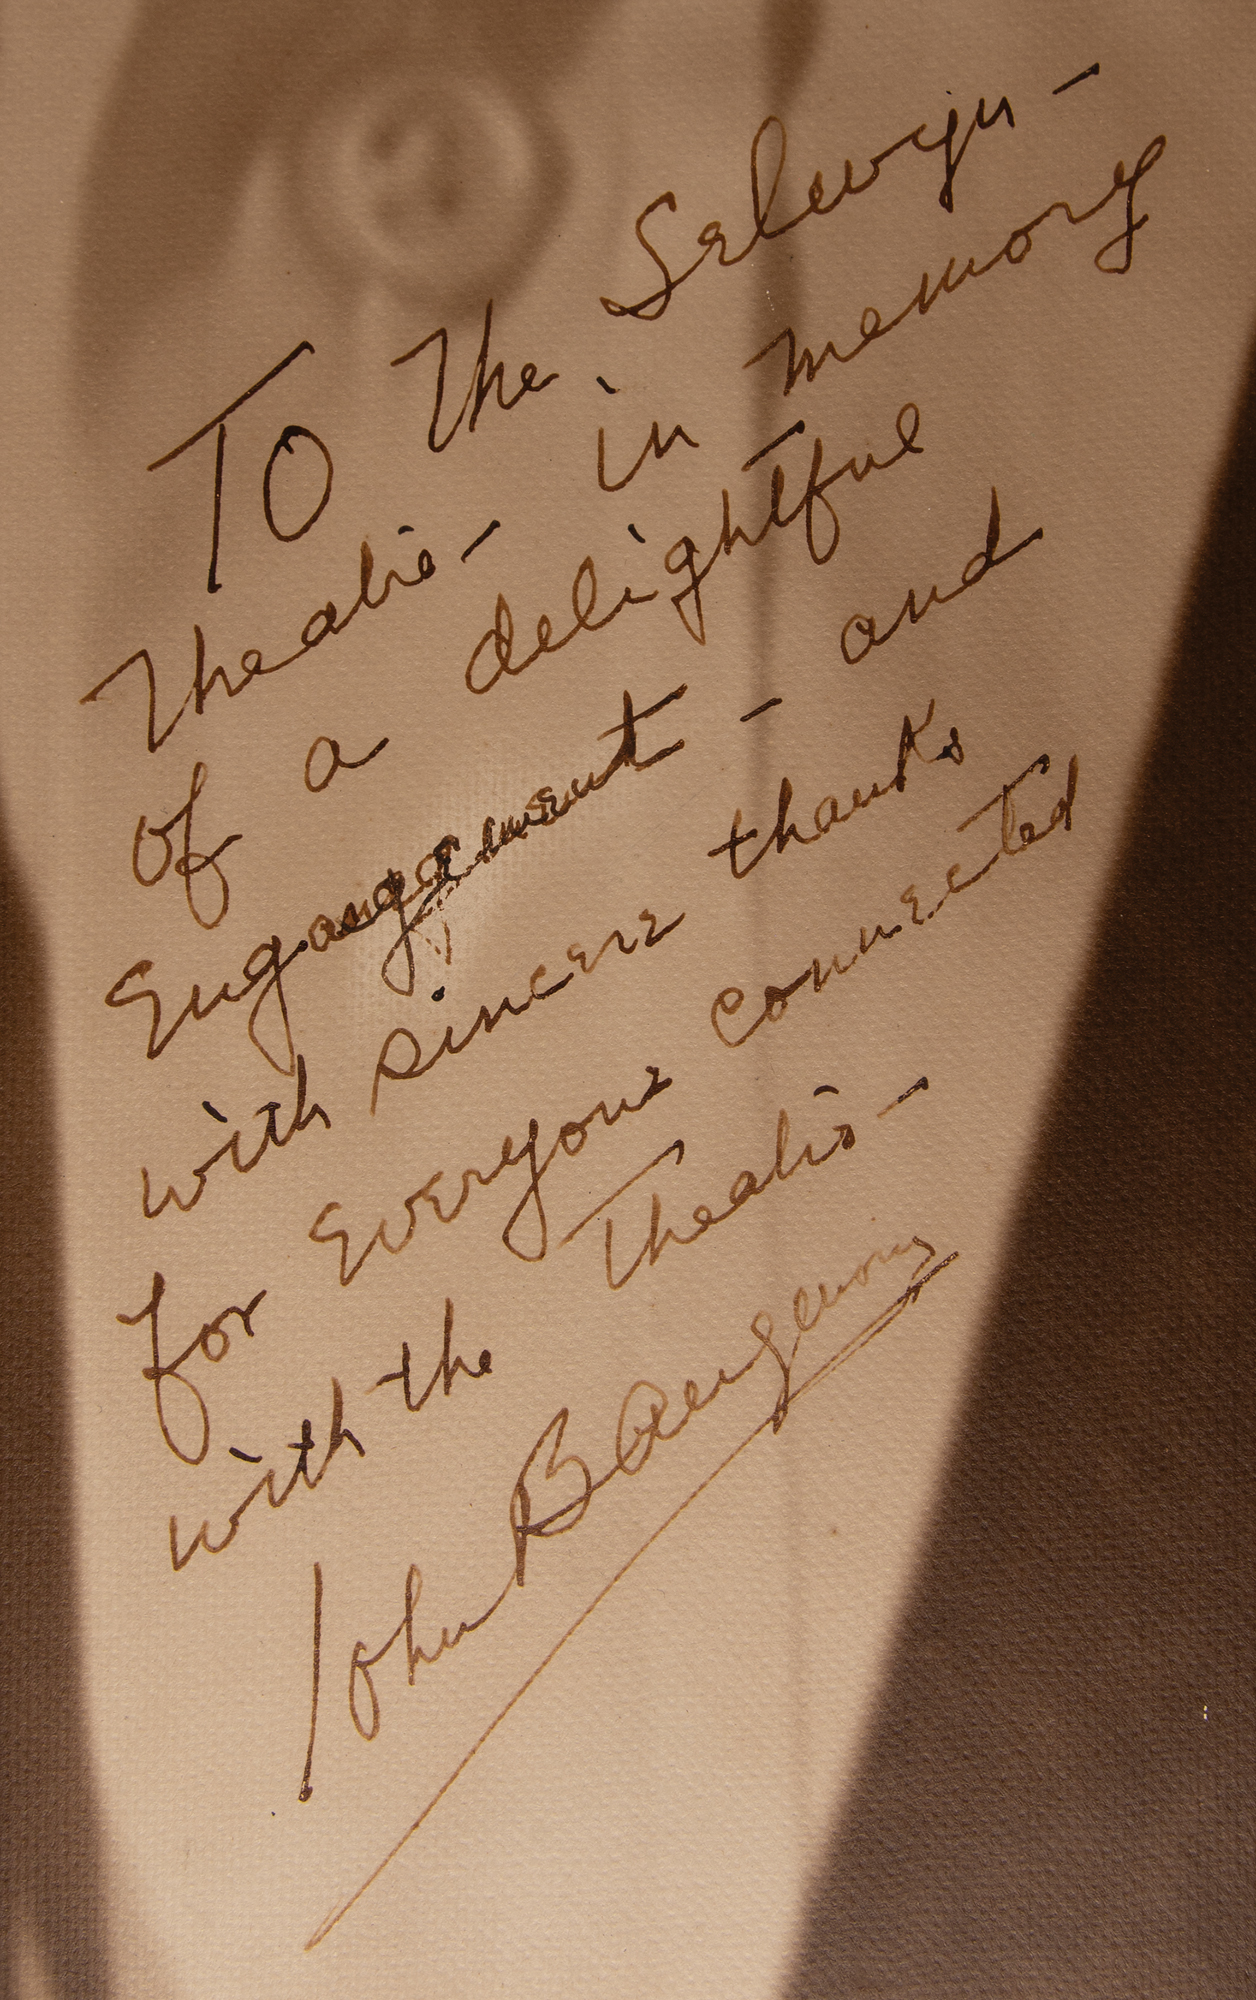 To The Selwyn –
Theatre – in memory
of a delightful
Engangement – and
with sincere thanks
for Everyone connected
with the Theatre –
John B